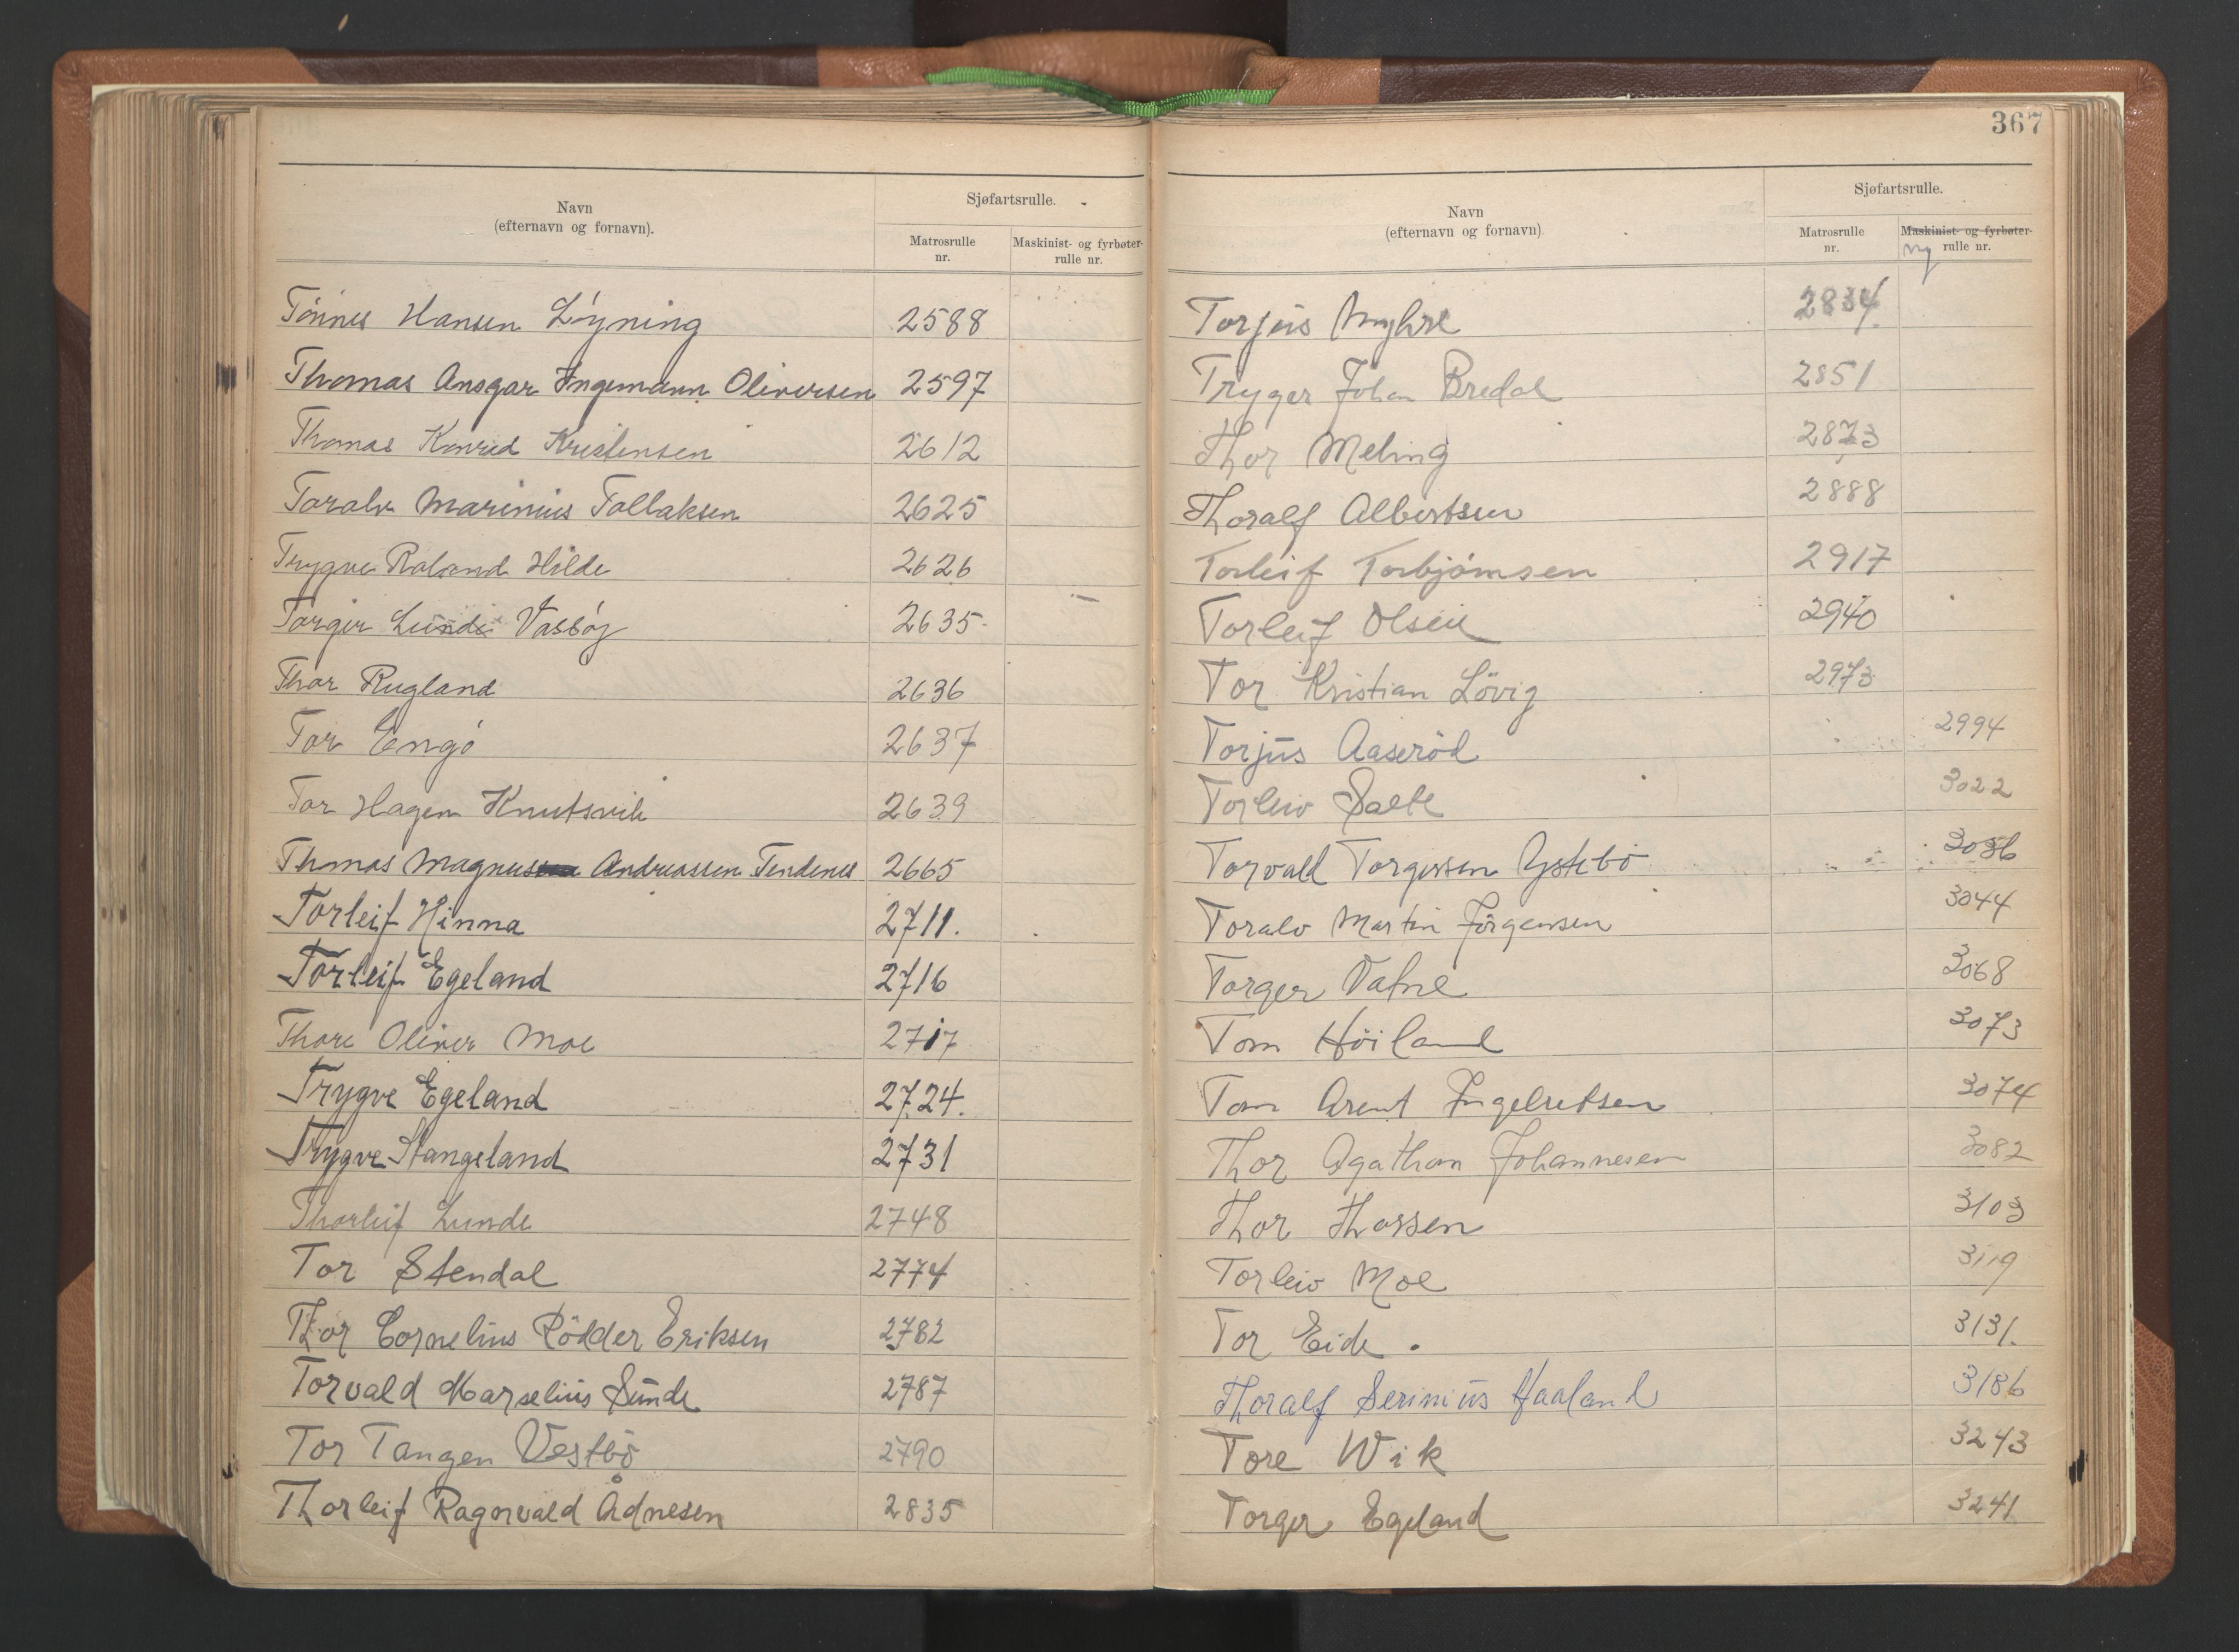 367
Navn
(efternavn og fornavn).
Sjøfartsrulle.
Matrosrulle nr.
Maskinist- og fyrbøter-rulle nr.
Tönnes Hansen Löyning 2588
Thomas Ansgar Ingemann Oliversen 2597
Thomas Konrad Kristensen 2612
Toralv Marinius Tollaksen 2625
Trygve Roland Hilde 2626
Torger Lunde Vasbö 2635
Thor Rugland 2636
Tor Engö 2637
Tor Hagen Knutsvik 2639
Thomas Magnus Andreassen Tendenes 2665
Torleif Hinna 2711.
Torleif Egeland 2716
Thore Oliver Moe 2717
Trygve Egeland 2724.
Trygve Stangeland 2731
Thorleif Lunde 2748
Tor Stendal 2774
Thor Cornelius Rödder Eriksen 2782
Torvald Marselius Sunde 2787
Tor Tangen Vestbö 2790
Thorleif Ragnvald Ådnesen 2835
Navn
(efternavn og fornavn)
Sjøfartsrulle.
Matrosrulle nr.
Maskinist- og fyrbøter-
ny rulle nr.
Torjus Myhre 2834.
Tryger Johan Bredal 2851
Thor Meling 2873
Thoralf Albertsen 2888
Torleif Torbjörnsen 2917
Torleif Olsen 2940
Tor Kristian Lövig 2973
Torjus Aaseröd 2994
Torleiv Salte 3022
Torvald Torgersen Ystebö 3036
Toralv Martin Jörgensen 3044
Torger Vatne 3068
Tom Höiland 3073
Tom Arent Ingelretsen 3074
Thor Agathon Johannesen 3082
Thor Thorsen 3103
Torleiv Moe 3119
Tor Eide. 3131.
Thoralf Serinius Haaland 3186
Tore Wik 3243
Torger Egeland 3241